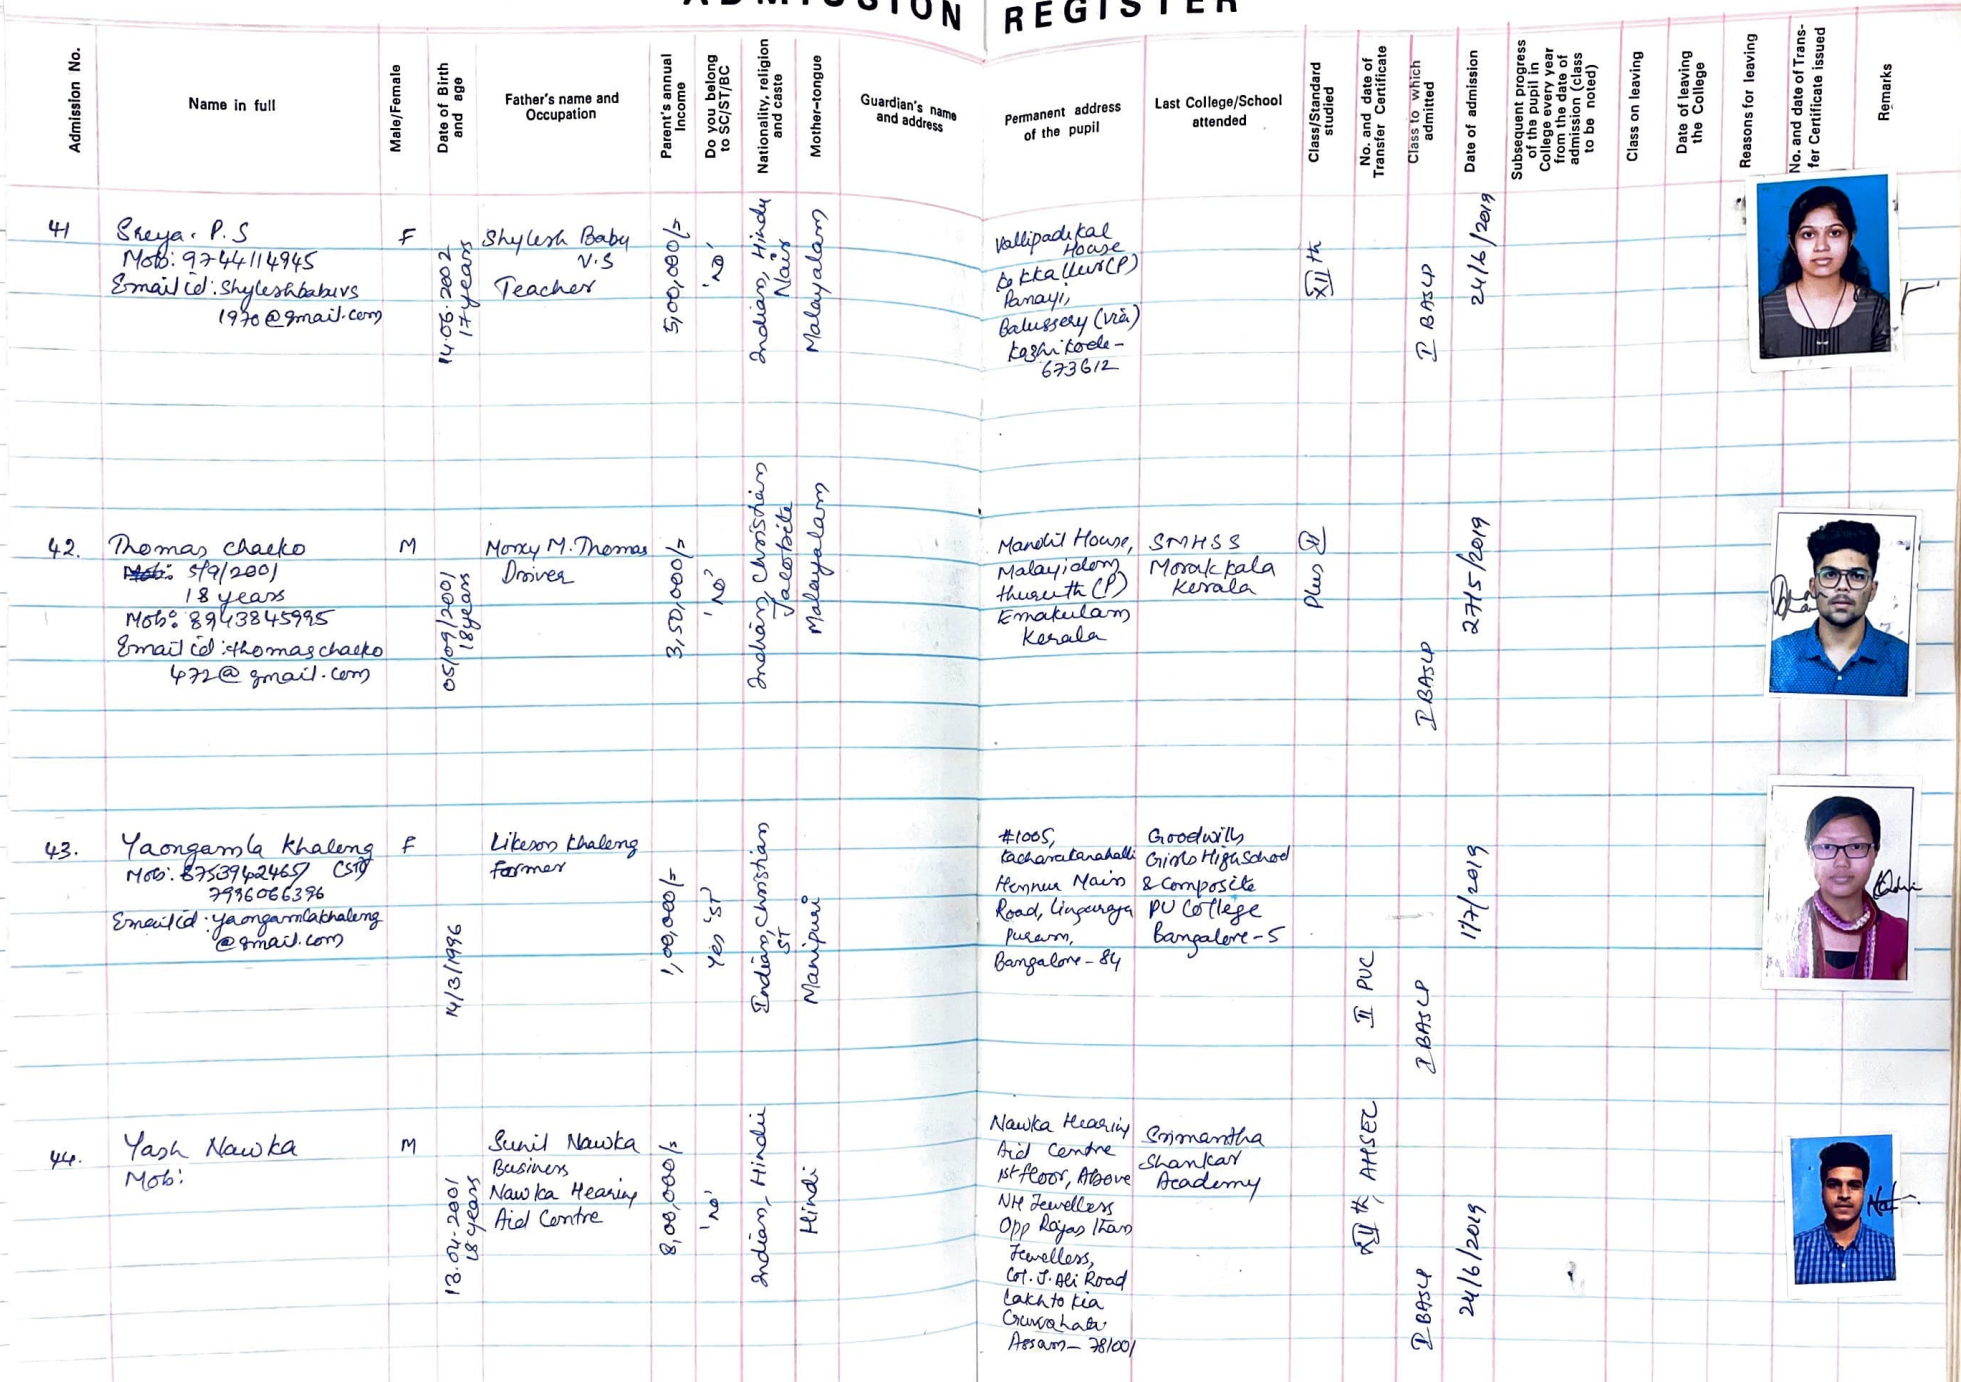 ADMISSION REGISTER
Admission No.
Name in full
Male/Female
Date of Birth
and age
Father's name and
Occupation
Parent's annual
Income
Do you belong
to SC/ST/BC
Nationality, religion
and caste
Mother-tongue
Guardian's name
and address
Permanent address
of the pupil
Last College/School
attended
Class/Standard
studied
No. and date of
Transfer Certificate
Class to which
admitted
Date of admission
Subsequent progress
of the pupil in
College every year
from the date of
admission (class
to be noted)
Class on leaving
Date of leaving
the College
Reasons for leaving
No. and date of Trans-
fer Certificate issued
Remarks
41
Sreya. P.S
Mob: 9744114945
Email id: Shyleshbabuvs
1970@gmail.com
F
14.06.2002
17 years
Shylesh Babu
V.S
Teacher
5,00,000/=
'No'
Indian, Hindu
Nair
Malayalam
Vallipadikal
House
Kokkallur(P)
Panayi,
Balussery (via)
Kozhikode-
673612
XII th
I BASLP
24/6/2019
42.
Thomas Chacko
Mob: 5/9/2001
18 years
Mob: 8943845995
Email id: thomaschacko
472@gmail.com
M
05/09/2001
18 years
Moncy M. Thomas
Driver
3,50,000/=
'No'
Indian, Christian
Jacobite
Malayalam
Mandil House,
Malayidom
thuruth (P)
Ernakulam
Kerala
SMHSS
Morakkala
Kerala
Plus II
I BASLP
27/5/2019
43.
Yaongamla Khaleng
Mob: 8753942465/ (ST)
7996066396
Email id: yaongamlakhaleng
@gmail.com
F
14/3/1996
Likeson Khaleng
Farmer
1,00,000/=
Yes 'ST'
Indian, Christian
ST
Manipuri
#1005,
Kacharakanahalli
Hennur Main
Road, Lingaraja
Puram,
Bangalore-84
Goodwills
Girls High School
& Composite
PU College
Bangalore-5
II PUC
I BASLP
1/7/2019
44.
Yash Nawka
Mob:
M
13.04.2001
18 years
Sunil Nawka
Business
Nawka Hearing
Aid Centre
8,00,000/=
'No'
Indian, Hindu
Hindi
Nawka Hearing
Aid Centre
1st floor, Above
NH Jewelless
Opp Rajasthan
Jewelless,
Col. J. Ali Road
Lakhtokia
Guwahati
Assam- 781001
Srimantha
Shankar
Academy
XII th, AHSEC
I BASLP
24/6/2019